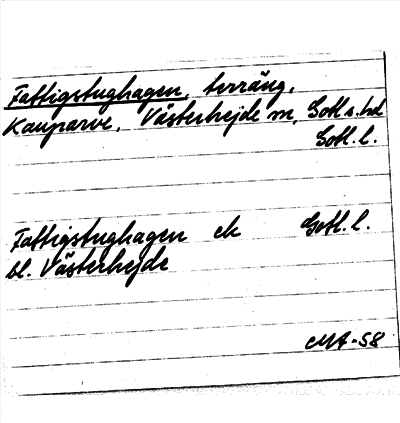 Fattigstughagen, terräng,
Kauparve, Västerhejde m, Gotl s. hd
Gotl. l.
Fattigstughagen ek Gotl. l.
bl. Västerhejde
MA-58